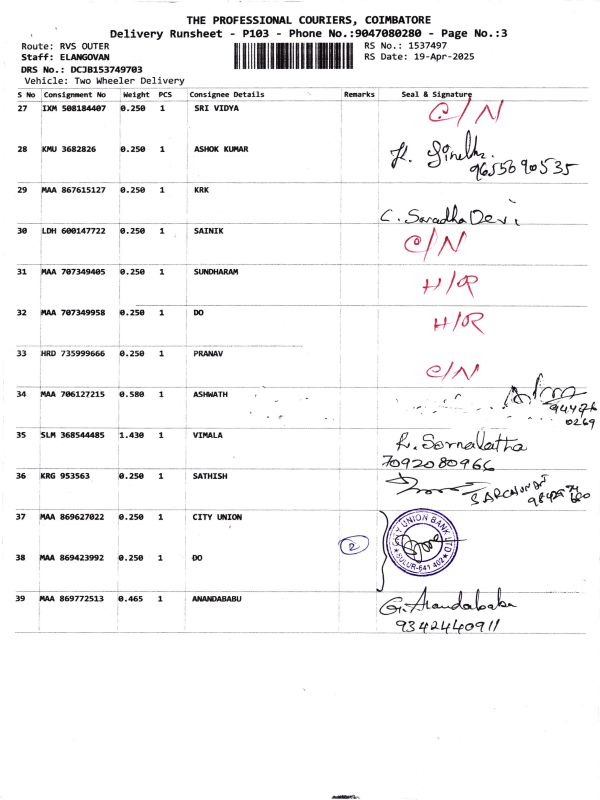 THE PROFESSIONAL COURIERS, COIMBATORE
Delivery Runsheet - P103 - Phone No.:9047080280 - Page No.:3
Route: RVS OUTER RS No.: 1537497
Staff: ELANGOVAN RS Date: 19-Apr-2025
DRS No.: DCJB153749703
Vehicle: Two Wheeler Delivery
S No Consignment No Weight PCS Consignee Details Remarks Seal & Signature
27 IXM 508184407 0.250 1 SRI VIDYA C/N
28 KMU 3682826 0.250 1 ASHOK KUMAR
9655690535
29 MAA 867615127 0.250 1 KRK
C. Saradha Devi
30 LDH 600147722 0.250 1 SAINIK C/N
31 MAA 707349405 0.250 1 SUNDHARAM H/R
32 MAA 707349958 0.250 1 DO H/R
33 HRD 735999666 0.250 1 PRANAV C/N
34 MAA 706127215 0.580 1 ASHWATH
0269
35 SLM 368544485 1.430 1 VIMALA R. Sornalatha
7092080966
36 KRG 953563 0.250 1 SATHISH
37 MAA 869627022 0.250 1 CITY UNION
2 CITY UNION BANK LTD
SULUR-641 402
38 MAA 869423992 0.250 1 DO
39 MAA 869772513 0.465 1 ANANDABABU G. Anandababu
9342440911